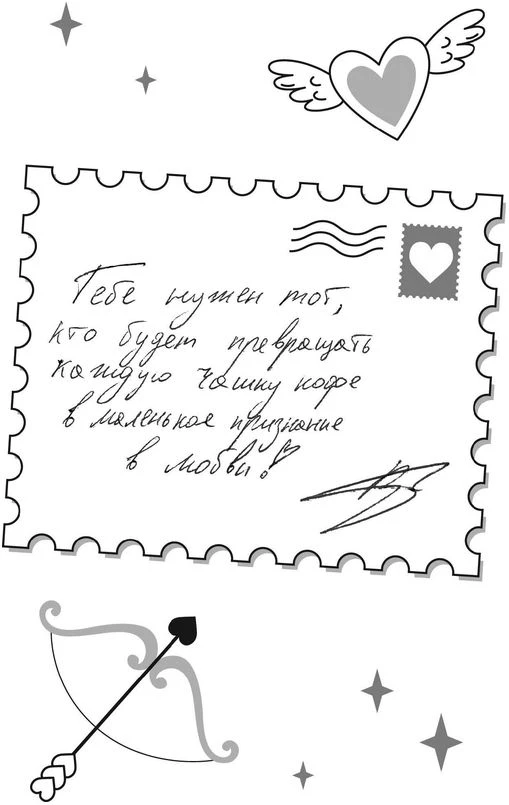 Тебе нужен тот,
кто будет превращать
каждую чашку кофе
в маленькое признание
в любви!